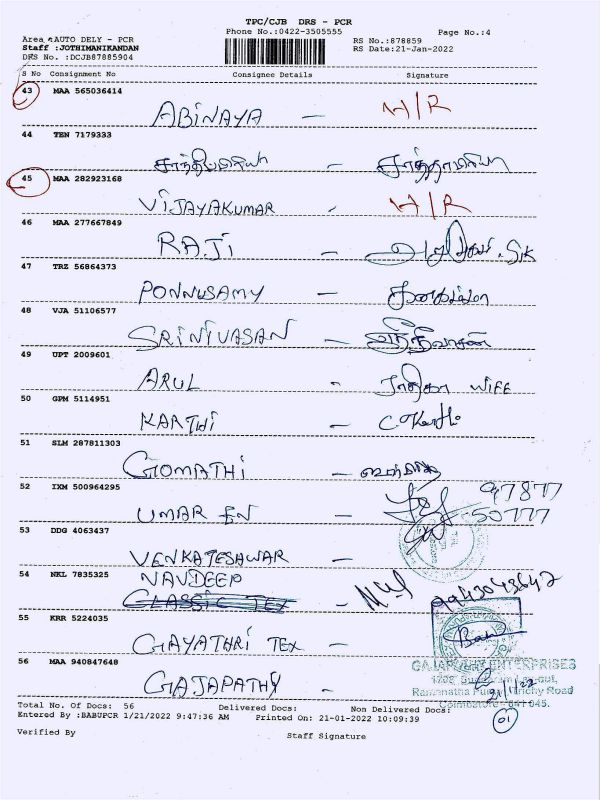 TPC/CJB DRS - PCR
Phone No.:0422-3505555
Page No.:4
Area :AUTO DELY - PCR
RS No.:878859
Staff :JOTHIMANIKANDAN
RS Date:21-Jan-2022
DRS No. :DCJB87885904
S No Consignment No Consignee Details Signature
43 MAA 565036414
ABINAYA - H/R
44 TEN 7179333
-
45 MAA 282923168
VIJAYAKUMAR - H/R
46 MAA 277667849
RAJI -
47 TRZ 56864373
PONNUSAMY -
48 VJA 51106577
SRINIVASAN - ஸ்ரீநிவாசன்
49 UPT 2009601
ARUL - ராதிகா WIFE
50 GPM 5114951
KARTHI -
51 SLM 287811303
GOMATHI -
52 IXM 500964295
UMAR EN - 97877
50777
53 DDG 4063437
VENKATESHWAR -
54 NKL 7835325
NAVDEEP
CLASSIC TEX - 9943043642
55 KRR 5224035
GAYATHRI TEX -
GAJAPATHY ENTERPRISES
56 MAA 940847648
GAJAPATHY - 21/1/22
Ramanatha Puram, Trichy Road
Coimbatore - 641 045.
Total No. Of Docs: 56 Delivered Docs: Non Delivered Docs:
01
Entered By :BABUPCR 1/21/2022 9:47:36 AM Printed On: 21-01-2022 10:09:39
Verified By Staff Signature